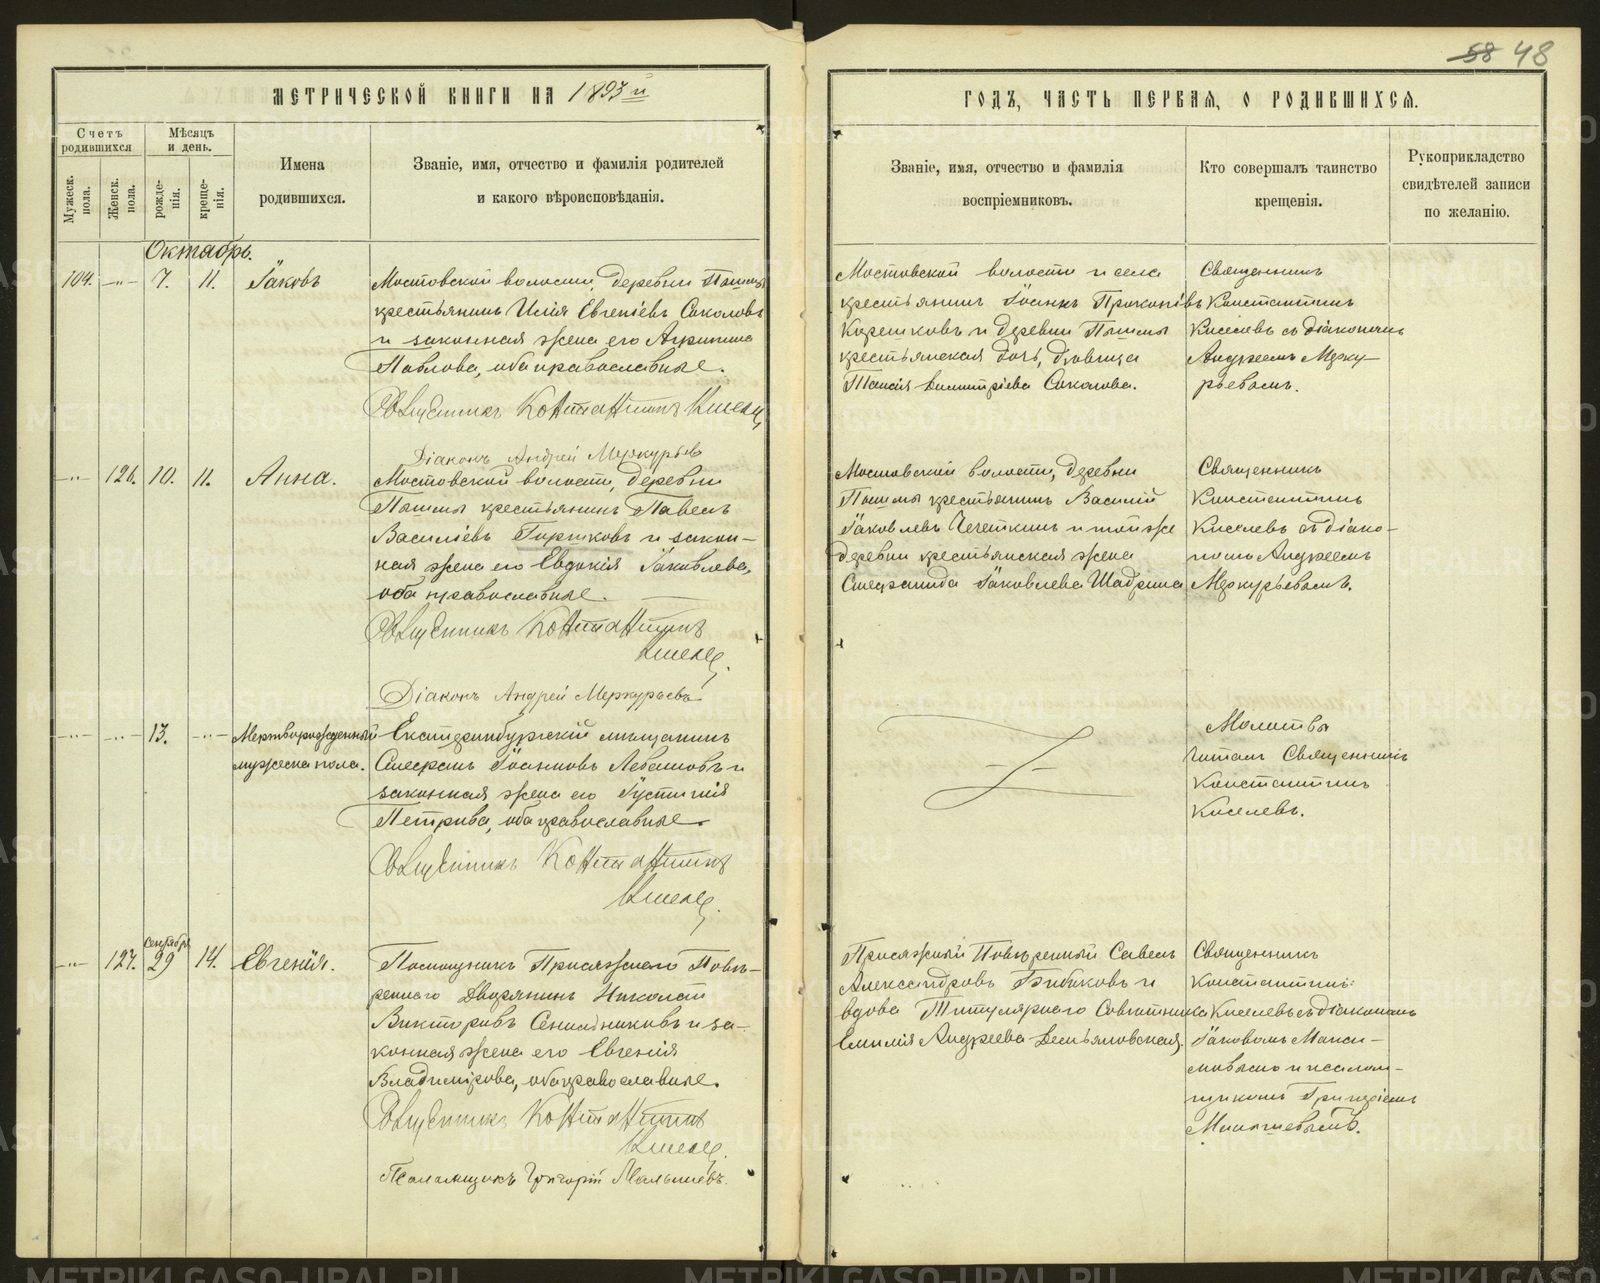 58 48
МЕТРИЧЕСКОЙ КНИГИ НА 1893 й
ГОДЪ, ЧАСТЬ ПЕРВАЯ, О РОДИВШИХСЯ.
Счетъ родившихся
Мужеск. пола.
Женск. пола.
Мѣсяцъ и день.
рожде-нія.
креще-нія.
Имена родившихся.
Званіе, имя, отчество и фамилія родителей
и какого вѣроисповѣданія.
Званіе, имя, отчество и фамилія
воспріемниковъ.
Кто совершалъ таинство
крещенія.
Рукоприкладство
свидѣтелей записи
по желанію.
Октябрь.
104. -"- 7. 11. Іаковъ
Мостовской волости, деревни
крестьянинъ Илія Евгеніевъ Соколовъ
и законная жена его Агрипина
Павлова, оба православные.
Священникъ Константинъ Киселевъ
Діаконъ Андрей Меркурьевъ
Мостовской волости и села
крестьянинъ Іоаннъ Прокопіевъ
и деревни Пышмы
крестьянская дочь, дѣвица
Таисія Димитріева Соколова.
Священникъ
Константинъ
Киселевъ съ діакономъ
Андреемъ Мерку-
рьевымъ.
-"- 126. 10. 11. Анна.
Мостовской волости, деревни
Пышмы крестьянинъ Павелъ
Василіевъ и закон-
ная жена его Евдокія Іаковлева,
оба православные.
Священникъ Константинъ
Киселевъ
Діаконъ Андрей Меркурьевъ
Мостовской волости, деревни
Пышмы крестьянинъ Василій
Іаковлевъ и той же
деревни крестьянская жена
Іаковлева Шадрина
Священникъ
Константинъ
Киселевъ съ діако-
номъ Андреемъ
Меркурьевымъ.
-"- -"- 13. -"- Мертворожденный
мужеска пола.
Екатеринбургскій мѣщанинъ
Іоанновъ и
законная жена его Іустинія
Петрова, оба православные.
Священникъ Константинъ
Киселевъ
Молитвы
читалъ Священникъ
Константинъ
Киселевъ.
-"- 127. Сентября 29 14. Евгенія.
Помощникъ Присяжнаго Повѣ-
реннаго Дворянинъ Николай
Викторовъ и за-
конная жена его Евгенія
Владимірова, оба православные.
Священникъ Константинъ
Киселевъ
Псаломщикъ Григорій Малышевъ.
Присяжный Повѣренный Савелъ
Александровъ Бибиковъ и
вдова Титулярнаго Совѣтника
Емилія Андреева Демьяновская.
Священникъ
Константинъ
Киселевъ съ діакономъ
Іаковомъ Макси-
мовымъ и псалом-
щикомъ Григоріемъ
Малышевымъ.